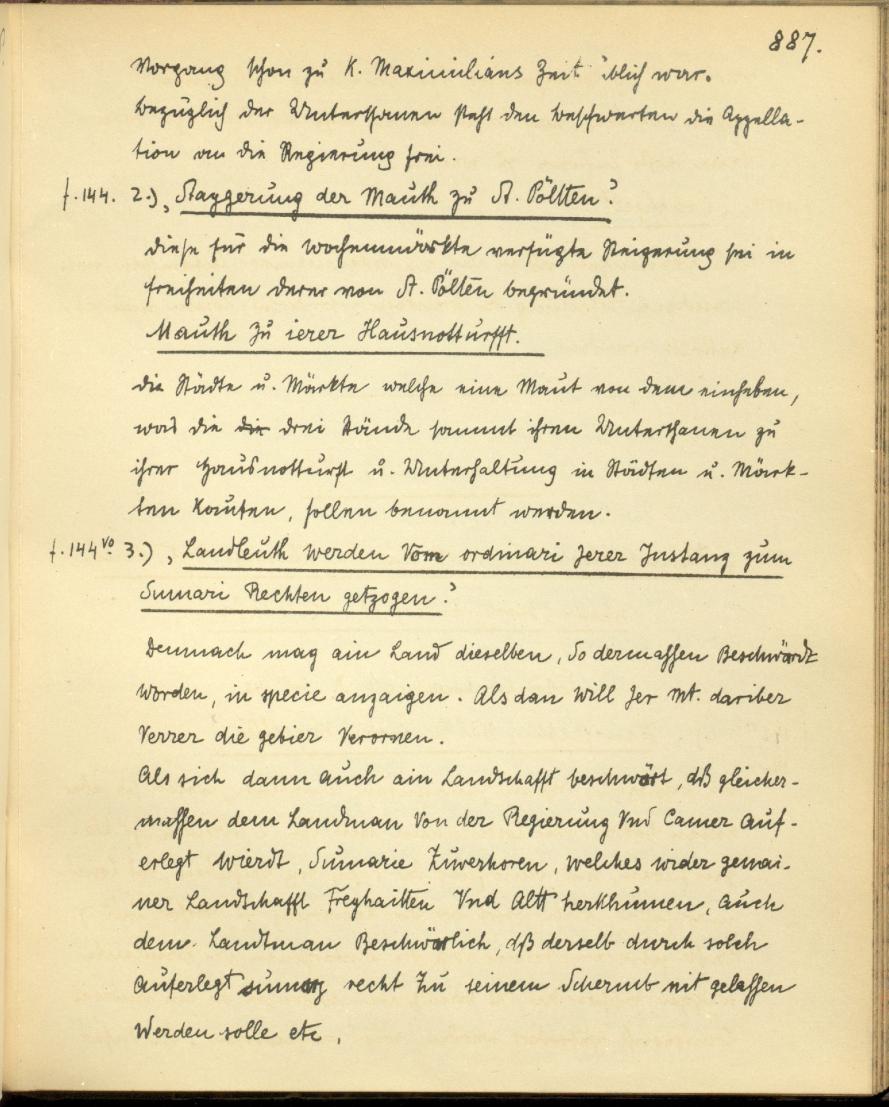 887.
Vorgang schon zu K. Maximilians Zeit üblich war.
Bezüglich der Unterthanen steht den Beschwerten die Appella-
tion an die Regierung frei.
f. 144. 2.) „Staygerung der Mauth zu St. Pöltten“
Diese für die Wochenmärkte verfügte Steigerung sei in
Freiheiten derer von St. Pölten begründet.
Mauth zu ierer Hausnotturfft.
Die Städte u. Märkte welche eine Maut von dem einheben,
was die die drei Stände sammt ihren Unterthanen zu
ihrer Hausnotturft u. Unterhaltung in Städten u. Märk-
ten kaufen, sollen benannt werden.
f. 144 vo. 3.) „Landleuth werden Vom ordinari Jerer Instanz zum
Sumari Rechten getzogen“
Demnach mag ain Land dieselben, So dermassen Beschwärdt
worden, in specie anzaigen. Als dan will Jer Mt. dariber
Verrer die gebier Verornen.
Als sich dann auch ain Landschafft beschwärt, dß gleicher-
massen dem Landman Von der Regierung Vnd Camer auf-
erlegt wierdt, Sumarie Zuverhoren, welches wider gemai-
ner Landschafft Freyhaitten Vnd Altt herkhumen, auch
dem Landtman Beschwärlich, dß derselb durch solch
auferlegt sumarj recht Zu seinem Schermb nit gelassen
Werden solle etc.